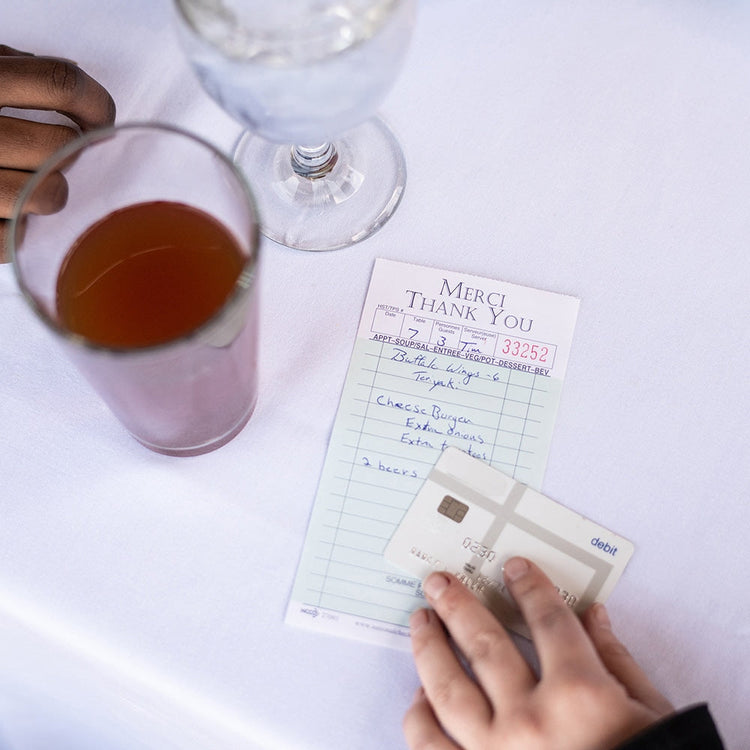 MERCI
THANK YOU
HST/TPS #
Date Table Personnes Guests Serveur(euse) Server
7 3 Tim 33252
APPT-SOUP/SAL-ENTREE-VEG/POT-DESSERT-BEV
Buffalo Wings - 6
Teriyak.
Cheese Burger
Extra Onions
Extra
2 beers
debit
0230
SOMME